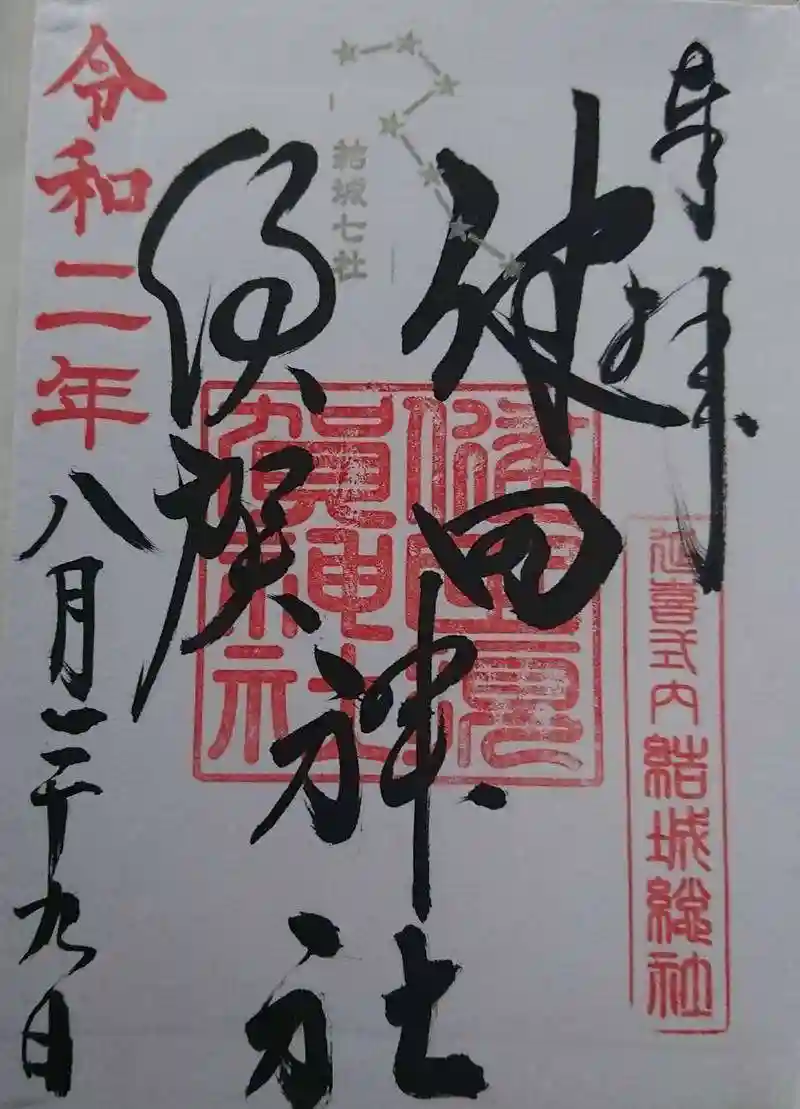 奉拝
延喜式内結城総社
健田
須賀
神社
健田須
賀神社
－結城七社－
令和二年
八月二十九日